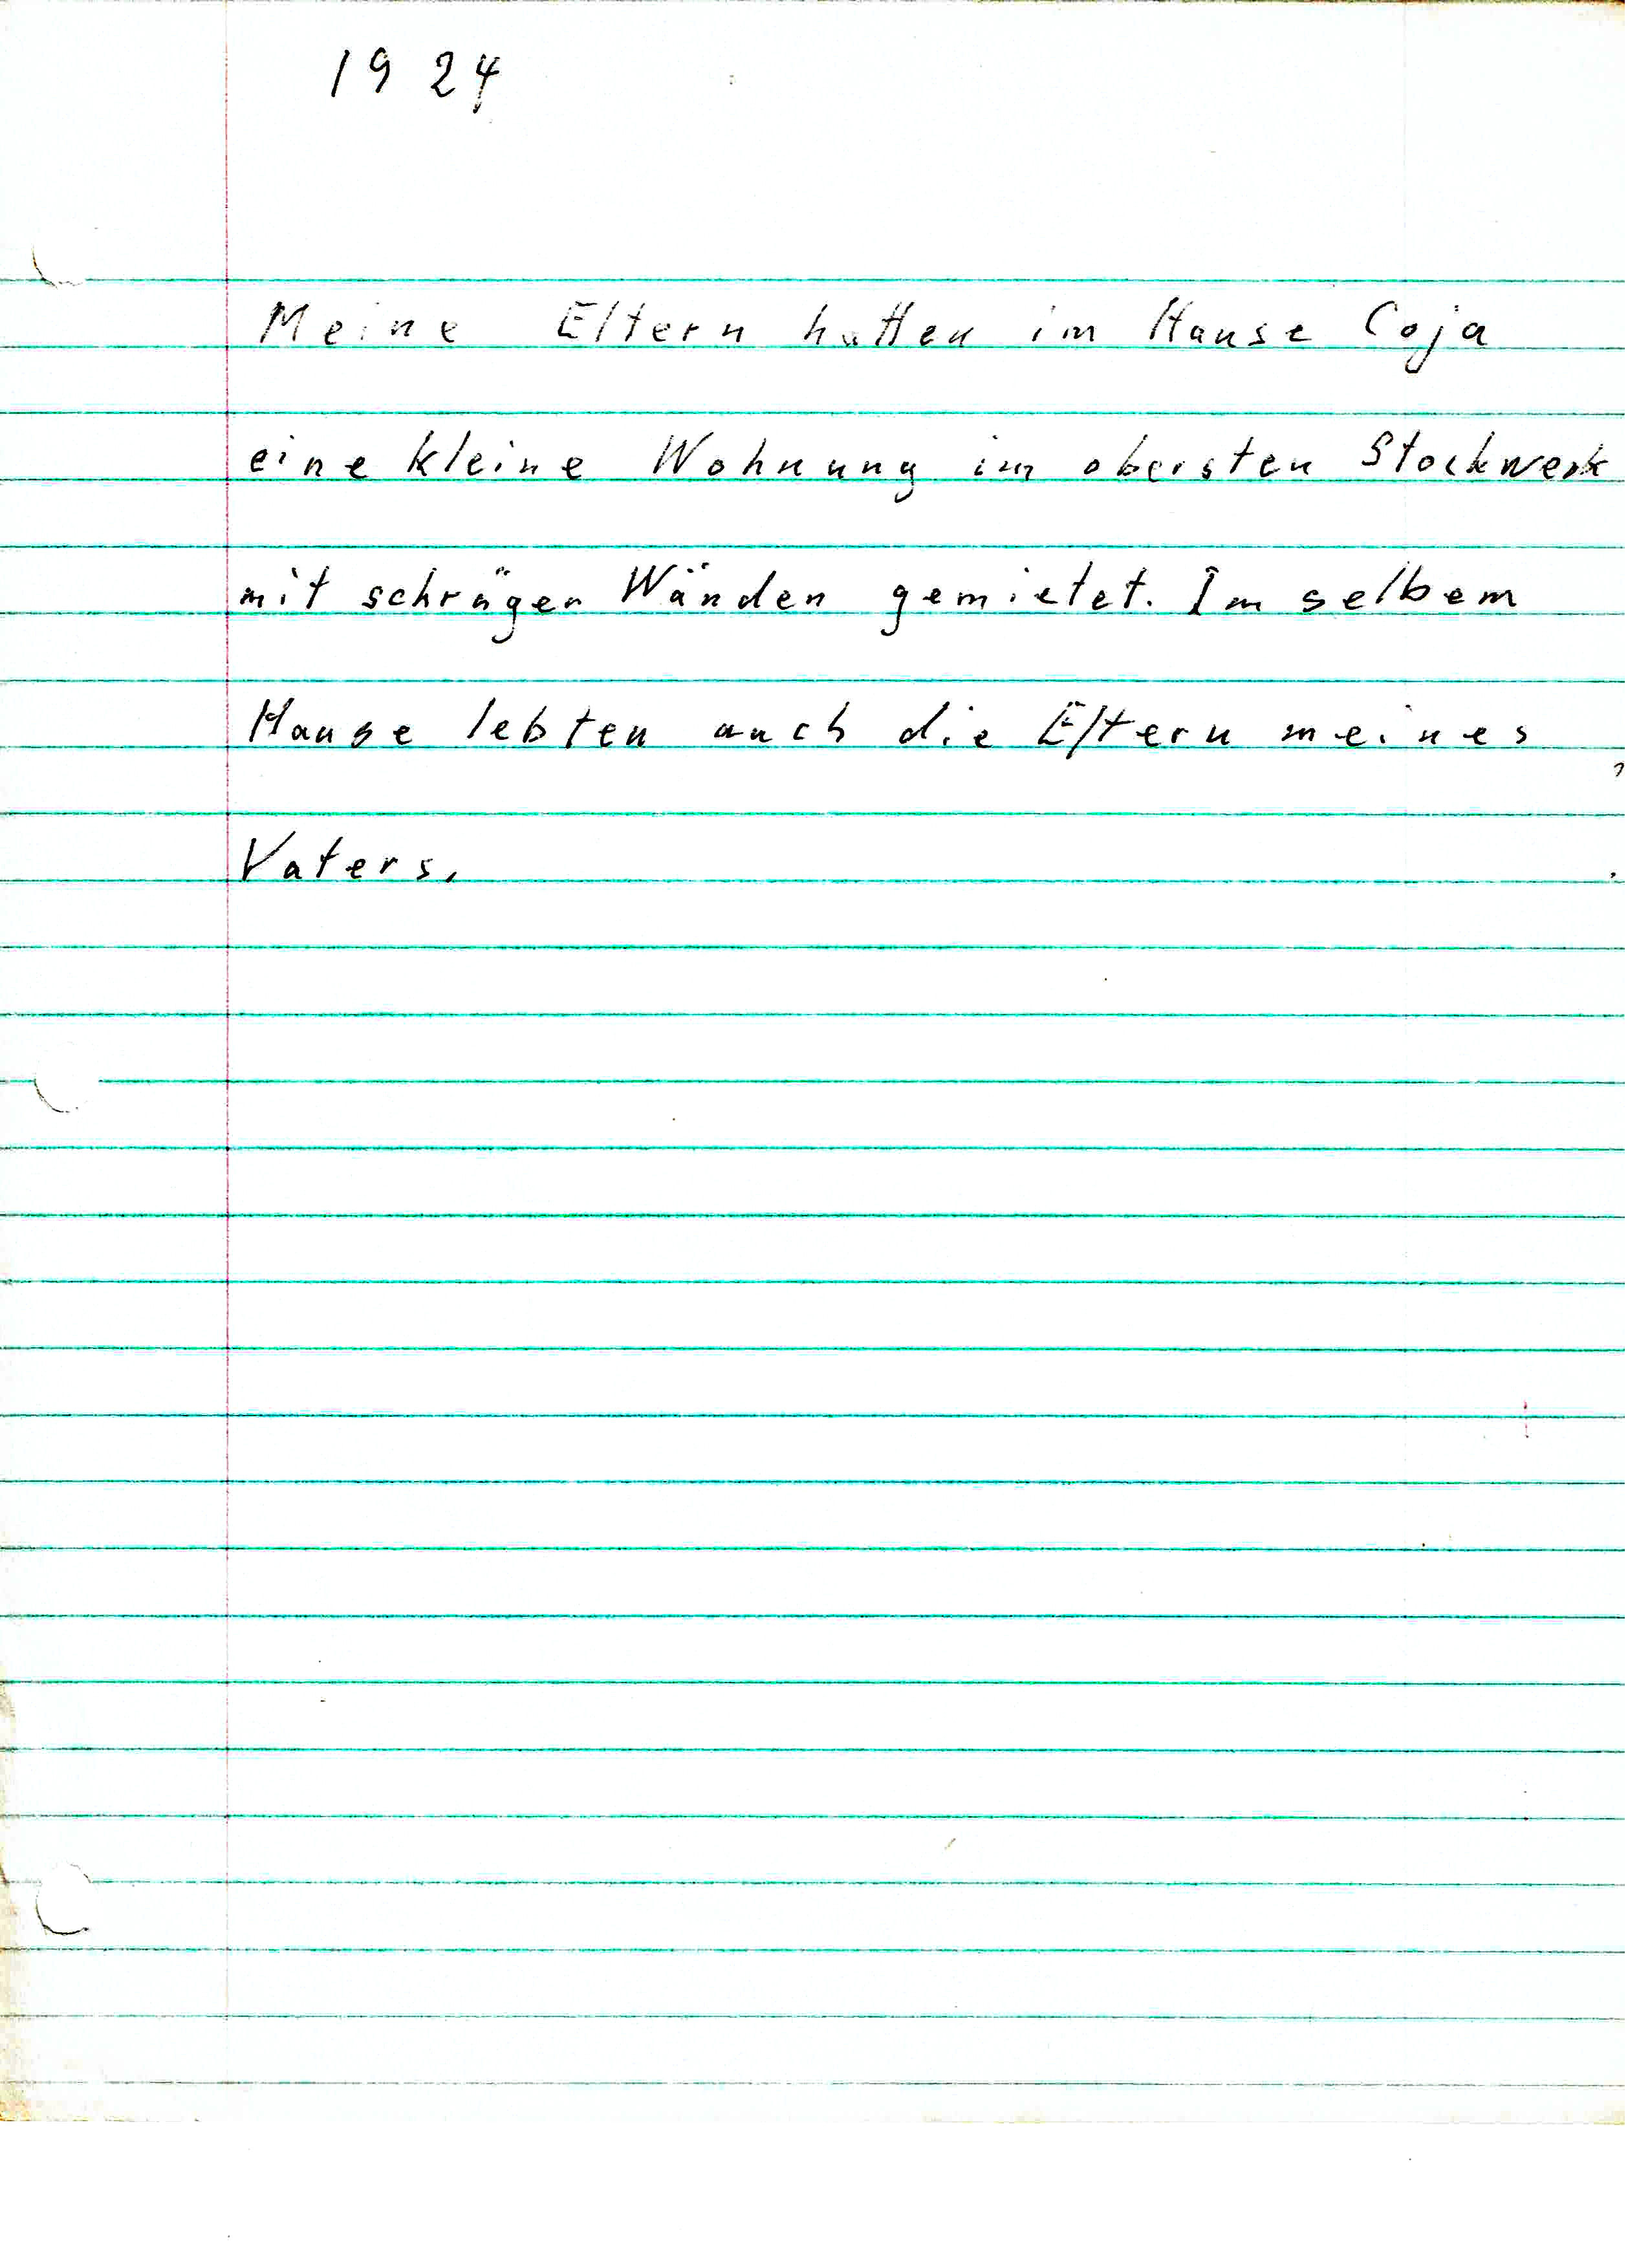 1924
Meine Eltern hatten im Hause Coja
eine kleine Wohnung im obersten Stockwerk
mit schrägen Wänden gemietet. Im selbem
Hause lebten auch die Eltern meines
Vaters.